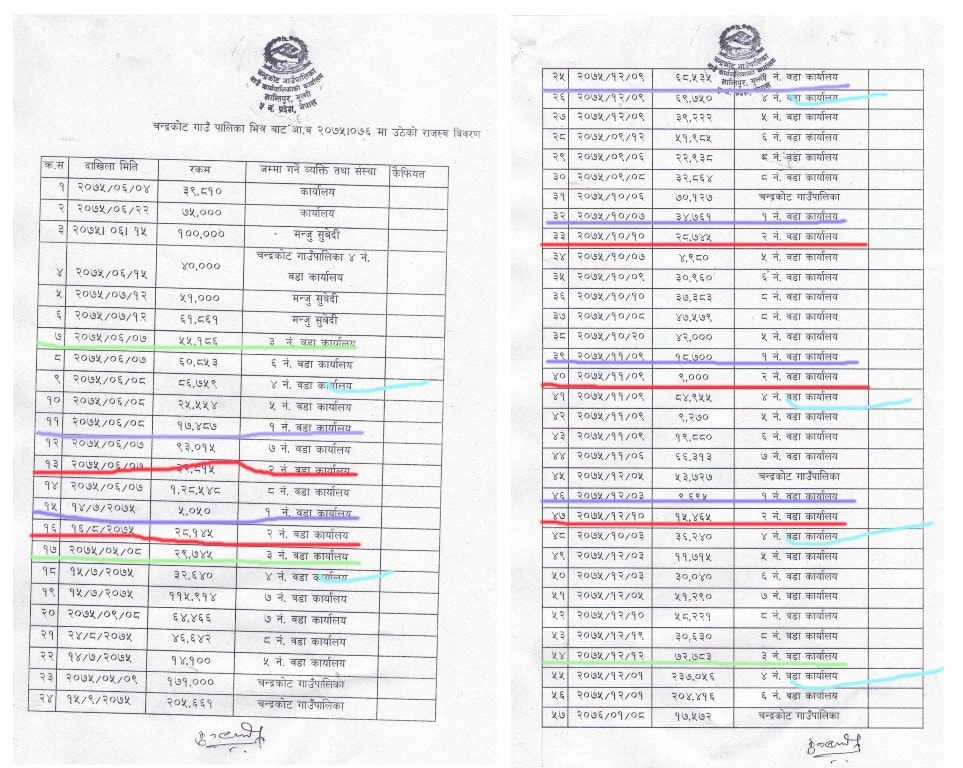 चन्द्रकोट गाउँपालिका
गाउँ कार्यपालिकाको कार्यालय
शान्तिपुर, गुल्मी
५ नं. प्रदेश, नेपाल
चन्द्रकोट गाउँ पालिका भित्र बाट आ.ब २०७५।०७६ मा उठेको राजस्व विवरण
क्र.स दाखिला मिति रकम जम्मा गर्ने व्यक्ति तथा संस्था कैफियत
१ २०७५/०६/०४ ३९,८१० कार्यालय
२ २०७५/०६/२२ ७५,००० कार्यालय
३ २०७५। ०६। १५ १००,००० मन्जु सुबेदी
४ २०७५/०६/१५ ४०,००० चन्द्रकोट गाउँपालिका ४ नं.
वडा कार्यालय
५ २०७५/०७/१२ ५१,००० मन्जु सुबेदी
६ २०७५/०७/१२ ६१,८६१ मन्जु सुबेदी
७ २०७५/०६/०७ ५५,१८६ ३ नं. वडा कार्यालय
८ २०७५/०६/०७ ६०,८५३ ६ नं. वडा कार्यालय
९ २०७५/०६/०८ ८६,७५९ ४ नं. वडा कार्यालय
१० २०७५/०६/०८ २५,५५४ ५ नं. वडा कार्यालय
११ २०७५/०६/०८ १७,४८७ १ नं. वडा कार्यालय
१२ २०७५/०६/०७ ९३,०१५ ७ नं. वडा कार्यालय
१३ २०७५/०६/०७ २ नं. वडा कार्यालय
१४ २०७५/०६/०७ १,२८,५४८ ८ नं. वडा कार्यालय
१५ १४/७/२०७५ ५,०५० १ नं. वडा कार्यालय
१६ १६/८/२०७५ २८,१४५ २ नं. वडा कार्यालय
१७ २०७५/०५/०८ २९,७४५ ३ नं. वडा कार्यालय
१८ १५/७/२०७५ ३२,६४० ४ नं. वडा कार्यालय
१९ १५/७/२०७५ ११५,९१४ ७ नं. वडा कार्यालय
२० २०७५/०९/०८ ६४,४६६ ७ नं. वडा कार्यालय
२१ २४/८/२०७५ ४६,६४२ ८ नं. वडा कार्यालय
२२ १४/७/२०७५ १४,१०० ५ नं. वडा कार्यालय
२३ २०७५/०५/०९ १७१,००० चन्द्रकोट गाउँपालिका
२४ १५/९/२०७५ २०५,६६१ चन्द्रकोट गाउँपालिका
चन्द्रकोट गाउँपालिका
गाउँ कार्यपालिकाको कार्यालय
शान्तिपुर, गुल्मी
५ नं. प्रदेश, नेपाल
२५ २०७५/१२/०९ ६८,५३५ नं. वडा कार्यालय
२६ २०७५/१२/०९ ६९,७५० ४ नं. वडा कार्यालय
२७ २०७५/१२/०९ ३९,२२२ ५ नं. वडा कार्यालय
२८ २०७५/०९/१२ ५१,९८५ ६ नं. वडा कार्यालय
२९ २०७५/०९/०६ २२,९३८ ८ नं. वडा कार्यालय
३० २०७५/०९/०८ ३२,८६४ ८ नं. वडा कार्यालय
३१ २०७५/१०/०६ ७०,१२७ चन्द्रकोट गाउँपालिका
३२ २०७५/१०/०७ ३४,७६१ १ नं. वडा कार्यालय
३३ २०७५/१०/१० २८,७४५ २ नं. वडा कार्यालय
३४ २०७५/१०/०७ ४,९८० ५ नं. वडा कार्यालय
३५ २०७५/१०/०९ ३०,९६० ६ नं. वडा कार्यालय
३६ २०७५/१०/१० ३७,३८३ ८ नं. वडा कार्यालय
३७ २०७५/१०/०८ ४७,५७९ ८ नं. वडा कार्यालय
३८ २०७५/१०/२० ४२,००० ५ नं. वडा कार्यालय
३९ २०७५/११/०९ १८,७०० १ नं. वडा कार्यालय
४० २०७५/११/०९ ९,००० २ नं. वडा कार्यालय
४१ २०७५/११/०९ ८४,९५५ ४ नं. वडा कार्यालय
४२ २०७५/११/०९ ९,२७० ५ नं. वडा कार्यालय
४३ २०७५/११/०९ १९,८८० ६ नं. वडा कार्यालय
४४ २०७५/११/०६ ६६,३१३ ७ नं. वडा कार्यालय
४५ २०७५/१२/०५ ५३,७२७ चन्द्रकोट गाउँपालिका
४६ २०७५/१२/०३ ९,६९५ १ नं. वडा कार्यालय
४७ २०७५/१२/१० १५,४६५ २ नं. वडा कार्यालय
४८ २०७५/१०/०३ ३६,२४० ४ नं. वडा कार्यालय
४९ २०७५/१२/०३ ११,७१५ ५ नं. वडा कार्यालय
५० २०७५/१२/०३ ३०,०४० ६ नं. वडा कार्यालय
५१ २०७५/१२/०५ ५१,२९० ७ नं. वडा कार्यालय
५२ २०७५/१२/१० ५८,२२१ ८ नं. वडा कार्यालय
५३ २०७५/१२/१९ ३०,६३० ८ नं. वडा कार्यालय
५४ २०७५/१२/१२ ७२,७८३ ३ नं. वडा कार्यालय
५५ २०७५/१२/०१ २३७,०५६ ४ नं. वडा कार्यालय
५६ २०७५/१२/०१ २०४,४१६ ६ नं. वडा कार्यालय
५७ २०७६/०१/०८ १७,५७२ चन्द्रकोट गाउँपालिका